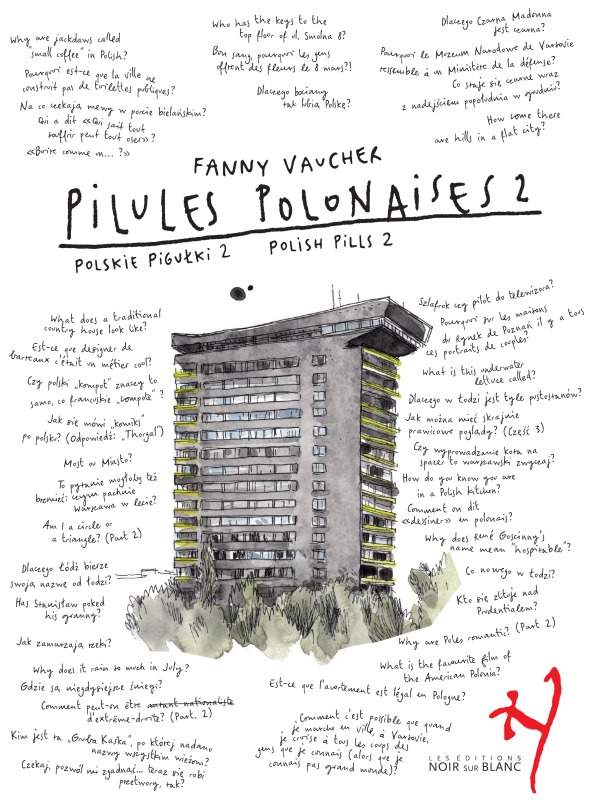 Why are jackdaws called
"small coffee" in Polish?
Pourquoi est-ce que la ville ne
construit pas de toilettes publiques?
Na co czekają mewy w porcie bielańskim?
Qui a dit «Qui sait tout
souffrir peut tout oser»?
«Boire comme un... ?»
Who has the keys to the
top floor of ul. Smolna 8?
Bon sang, pourquoi les gens
offrent des fleurs le 8 mars?!
Dlaczego bociany
tak lubią Polskę?
Dlaczego Czarna Madonna
jest czarna?
Pourquoi le Muzeum Narodowe de Varsovie
ressemble à un Ministère de la défense?
Co staje się czarne wraz
z nadejściem popołudnia w grudniu?
How come there
are hills in a flat city?
FANNY VAUCHER
PILULES POLONAISES 2
POLSKIE PIGUŁKI 2
POLISH PILLS 2
What does a traditional
country house look like?
Est-ce que designer de
barreaux c'était un métier cool?
Czy polski „kompot" znaczy to
samo, co francuskie „compote"?
Jak się mówi „komiks"
po polsku? (Odpowiedź: „Thorgal")
Most or Miasto?
To pytanie mogłoby też
brzmieć: czym pachnie
Warszawa w lecie?
Am I a circle or
a triangle? (Part 2)
Dlaczego Łódź bierze
swoją nazwę od łodzi?
Has Stanisław poked
his granny?
Jak zamarzają rzeki?
Why does it rain so much in July?
Gdzie są niegdysiejsze śniegi?
Comment peut-on être autant nationaliste
d'extrême-droite? (Part. 2)
Kim jest ta „Gruba Kaśka", po której nadano
nazwy wszystkim wieżom?
Czekaj, pozwól mi zgadnąć... teraz się robi
przetwory, tak?
Szlafrok czy pilot do telewizora?
Pourquoi sur les maisons
du Rynek de Poznań il y a tous
ces portraits de couples?
What is this underwater
lettuce called?
Dlaczego w Łodzi jest tyle pustostanów?
Jak można mieć skrajnie
prawicowe poglądy? (Część 3)
Czy wyprowadzanie kota na
spacer to warszawski zwyczaj?
How do you know you are
in a Polish kitchen?
Comment on dit
«dessiner» en polonais?
Why does René Goscinny's
name mean "hospitable"?
Co nowego w Łodzi?
Kto się zlituje nad
Prudentialem?
Why are Poles romantic? (Part 2)
What is the favourite film of
the American Polonia?
Est-ce que l'avortement est légal en Pologne?
Comment c'est possible que quand
je marche en ville, à Varsovie,
je croise à tous les coups des
gens que je connais (alors que je
connais pas grand monde)?
LES ÉDITIONS
NOIR SUR BLANC